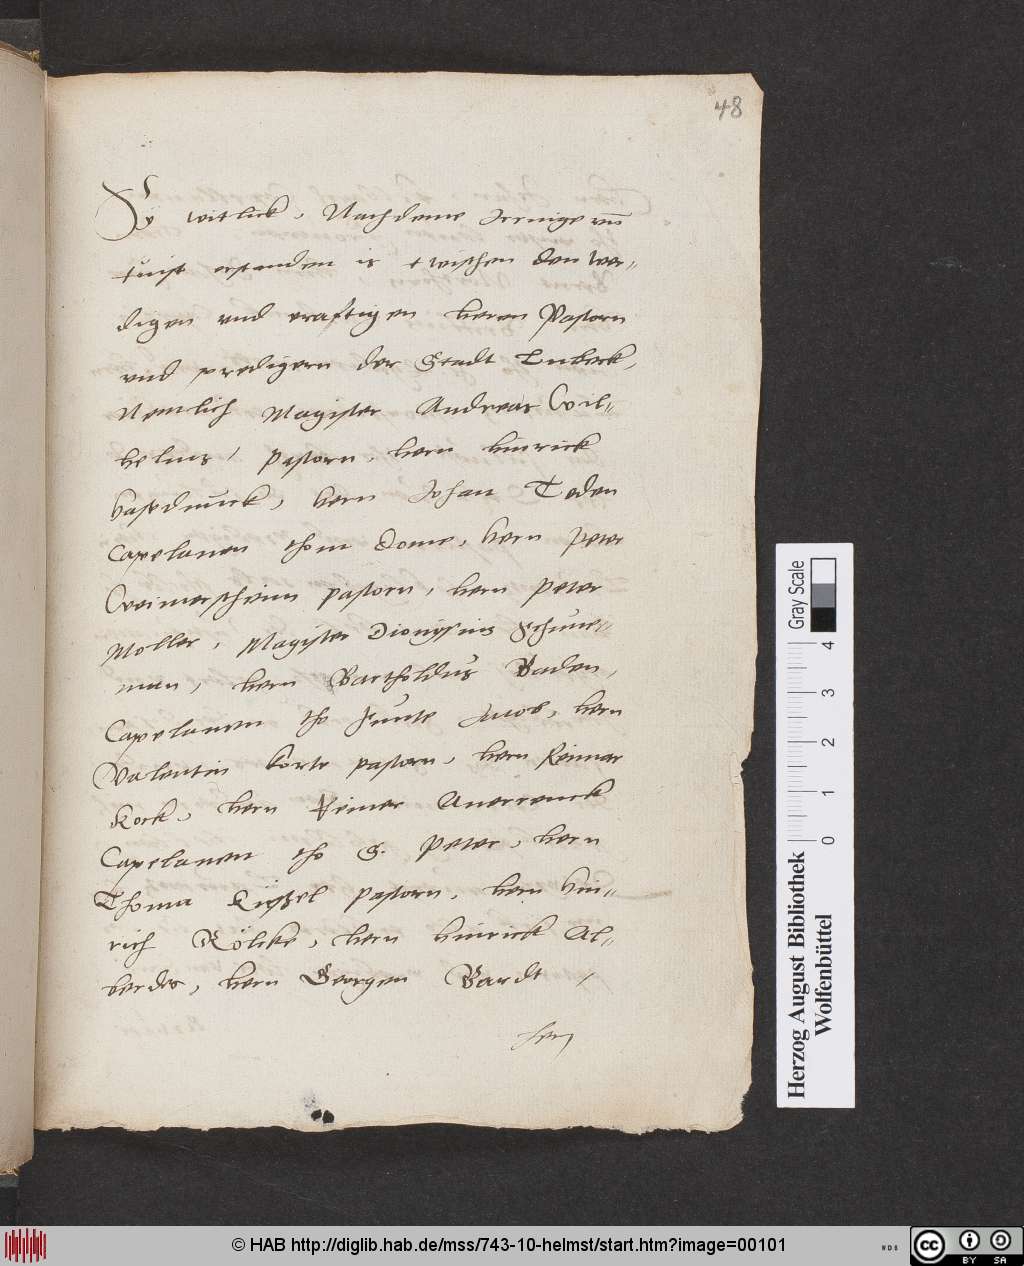 48
Sy witlick, Nachdeme Irringe vn̄
twist erstanden is twischen den wer=
digen vnd crafftigen heren Pastorn
vnd predigern der Stadt Lubeck,
Nemlich Magister Andreas Wil=
helms, Pastorn, hern Hinrick
, hern Johan Teden
Capelanen thom Dome, hern Peter
pastorn, hern Peter
Moller, Magister Dionysius Schune=
man, hern Bartholdus Baden,
Capelanen tho Sunte Jacob, hern
Valentin Korte pastorn, hern Reimar
Kock, hern Reimer
Capelanen tho S. Peter, hern
Thoma pastorn, hern Hin=
rich , hern Hinrick Al=
berdes, hern Georgen Bardt,
hern
Gray Scale
0 1 2 3 4
Herzog August Bibliothek
Wolfenbüttel
© HAB http://diglib.hab.de/mss/743-10-helmst/start.htm?image=00101
WDB
cc BY SA